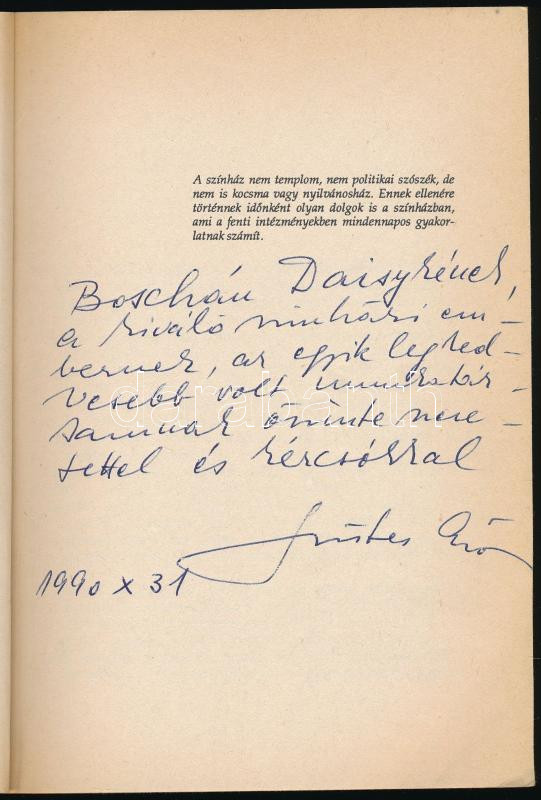 A színház nem templom, nem politikai szószék, de
nem is kocsma vagy nyilvánosház. Ennek ellenére
történnek időnként olyan dolgok is a színházban,
ami a fenti intézményekben mindennapos gyakor-
latnak számít.
Boschán Daisykének,
a kiváló színházi em-
bernek, az egyik legked-
vesebb volt munkatár-
samnak őszinte szere-
tettel és kézcsókkal
1990 X 31
darabanth